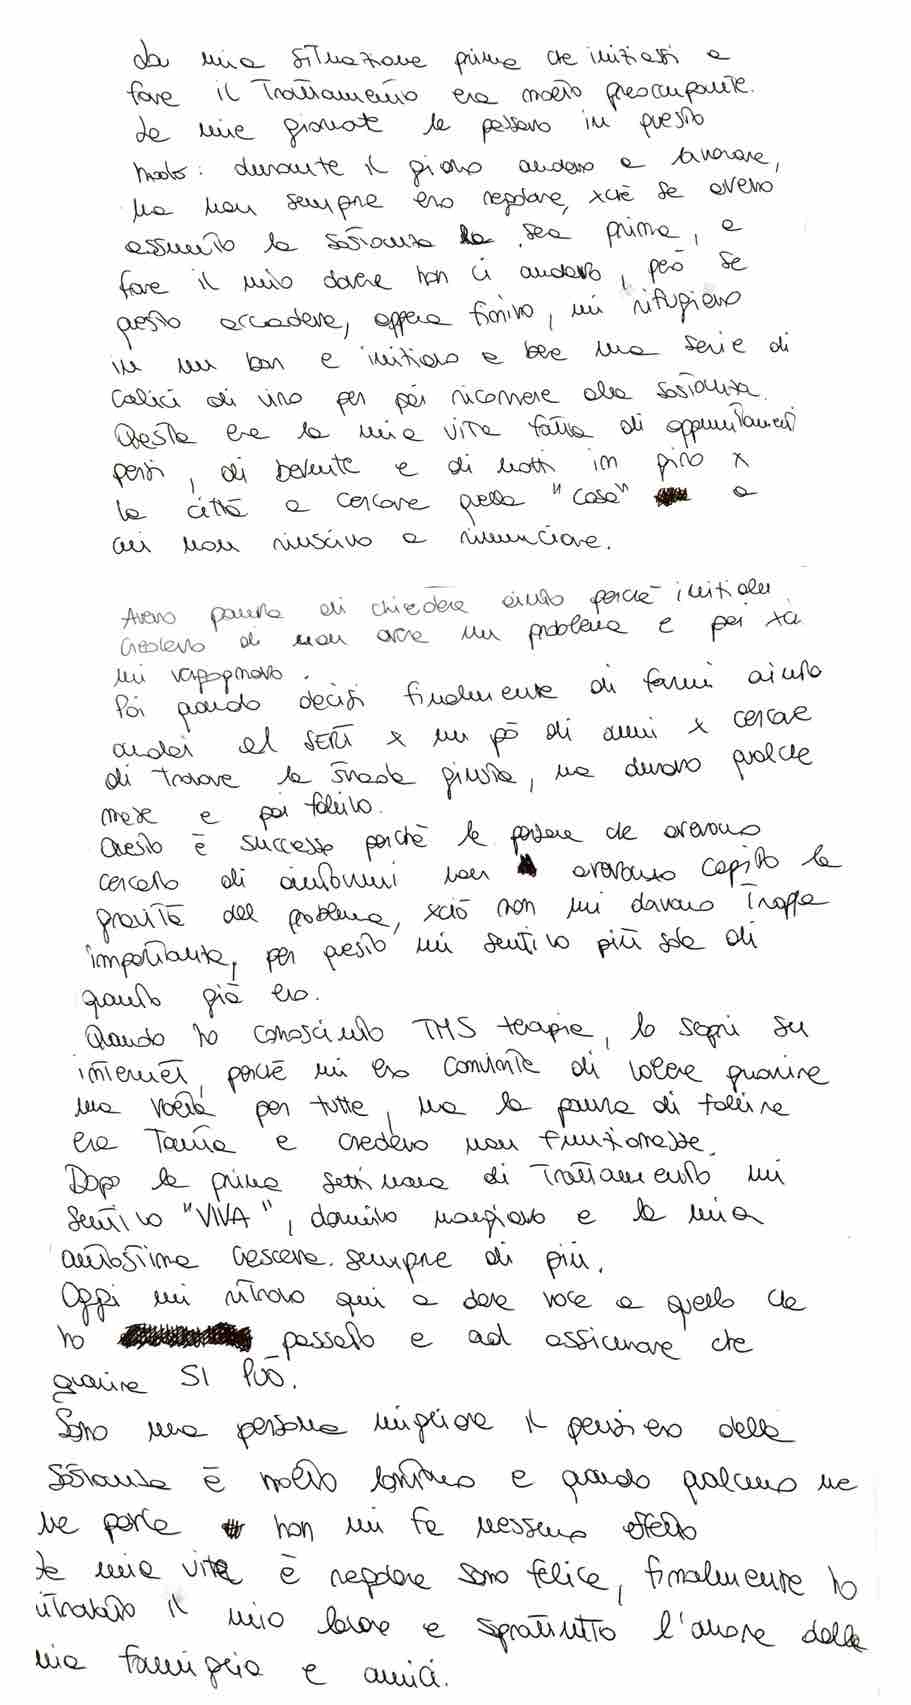 La mia situazione prima che iniziassi a
fare il Trattamento era molto preoccupante.
Le mie giornate le passavo in questo
modo: durante il giorno andavo a lavorare,
ma non sempre ero regolare, xchè se avevo
assunto la sostanza la sera prima, a
fare il mio dovere non ci andavo, però se
questo accadeva, appena finivo, mi rifugiavo
in un bar e iniziavo a bere una serie di
calici di vino per poi ricorrere alla sostanza.
Questa era la mia vita fatta di appuntamenti
persi, di bevute e di notti in giro x
la città a cercare quella "cosa" a
cui non riuscivo a rinunciare.
Avevo paura di chiedere aiuto perchè
credevo di non avere un problema e poi xchè
mi vergognavo.
Poi quando decisi finalmente di farmi aiutare
andai al SERT x un pò di anni x cercare
di trovare la strada giusta, ma duravo qualche
mese e poi fallivo.
Questo è successo perchè le persone che avevano
cercato di aiutarmi non avevano capito la
gravità del problema, xciò non mi davano troppa
importanza, per questo mi sentivo più sola di
quanto già ero.
Quando ho conosciuto TMS terapia, lo seguii su
internet, perchè mi ero convinta di volere guarire
una volta per tutte, ma la paura di fallire
era Tanta e credevo non funzionasse.
Dopo la prima settimana di Trattamento mi
sentivo "VIVA", dormivo mangiavo e la mia
autostima cresceva sempre di più.
Oggi mi ritrovo qui a dare voce a quello che
ho passato e ad assicurare che
guarire SI PUÒ.
Sono una persona migliore il pensiero della
sostanza è molto lontano e quando qualcuno me
ne parla non mi fa nessuno effetto
La mia vita è regolare sono felice, finalmente ho
ritrovato il mio lavoro e sopratutto l'amore della
mia famiglia e amici.